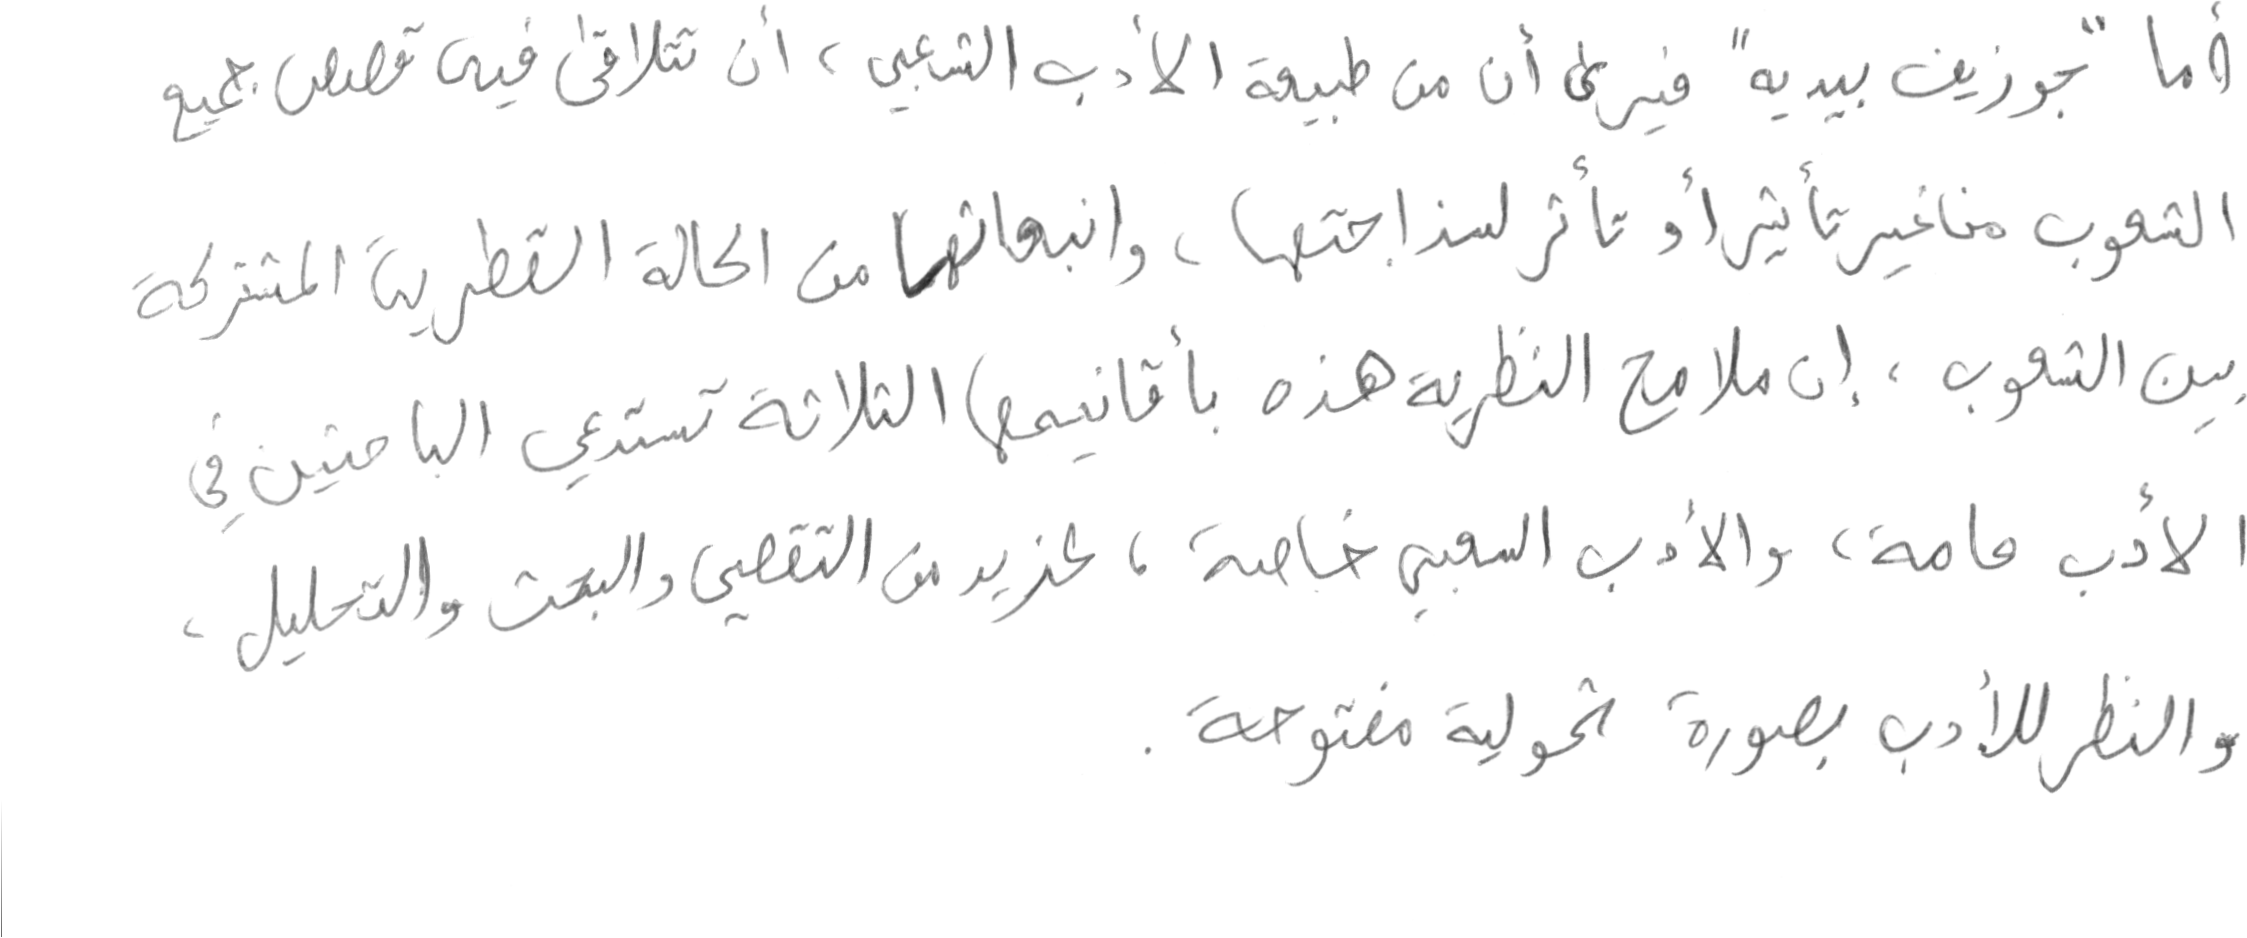 أما "جوزيف بيديه" فيرى أن من طبيعة الأدب الشعبي، أن تتلاقى فيه قصص جميع
الشعوب من غير تأثير أو تأثر لسذاجتها، وانبعاثها من الحالة الفطرية المشتركة
بين الشعوب، إن ملامح النظرية هذه بأقانيمها الثلاثة تستدعي الباحثين في
الأدب عامة، والأدب الشعبي خاصة، لمزيد من التقصي والبحث والتحليل،
والنظر للأدب بصورة تحولية مفتوحة.